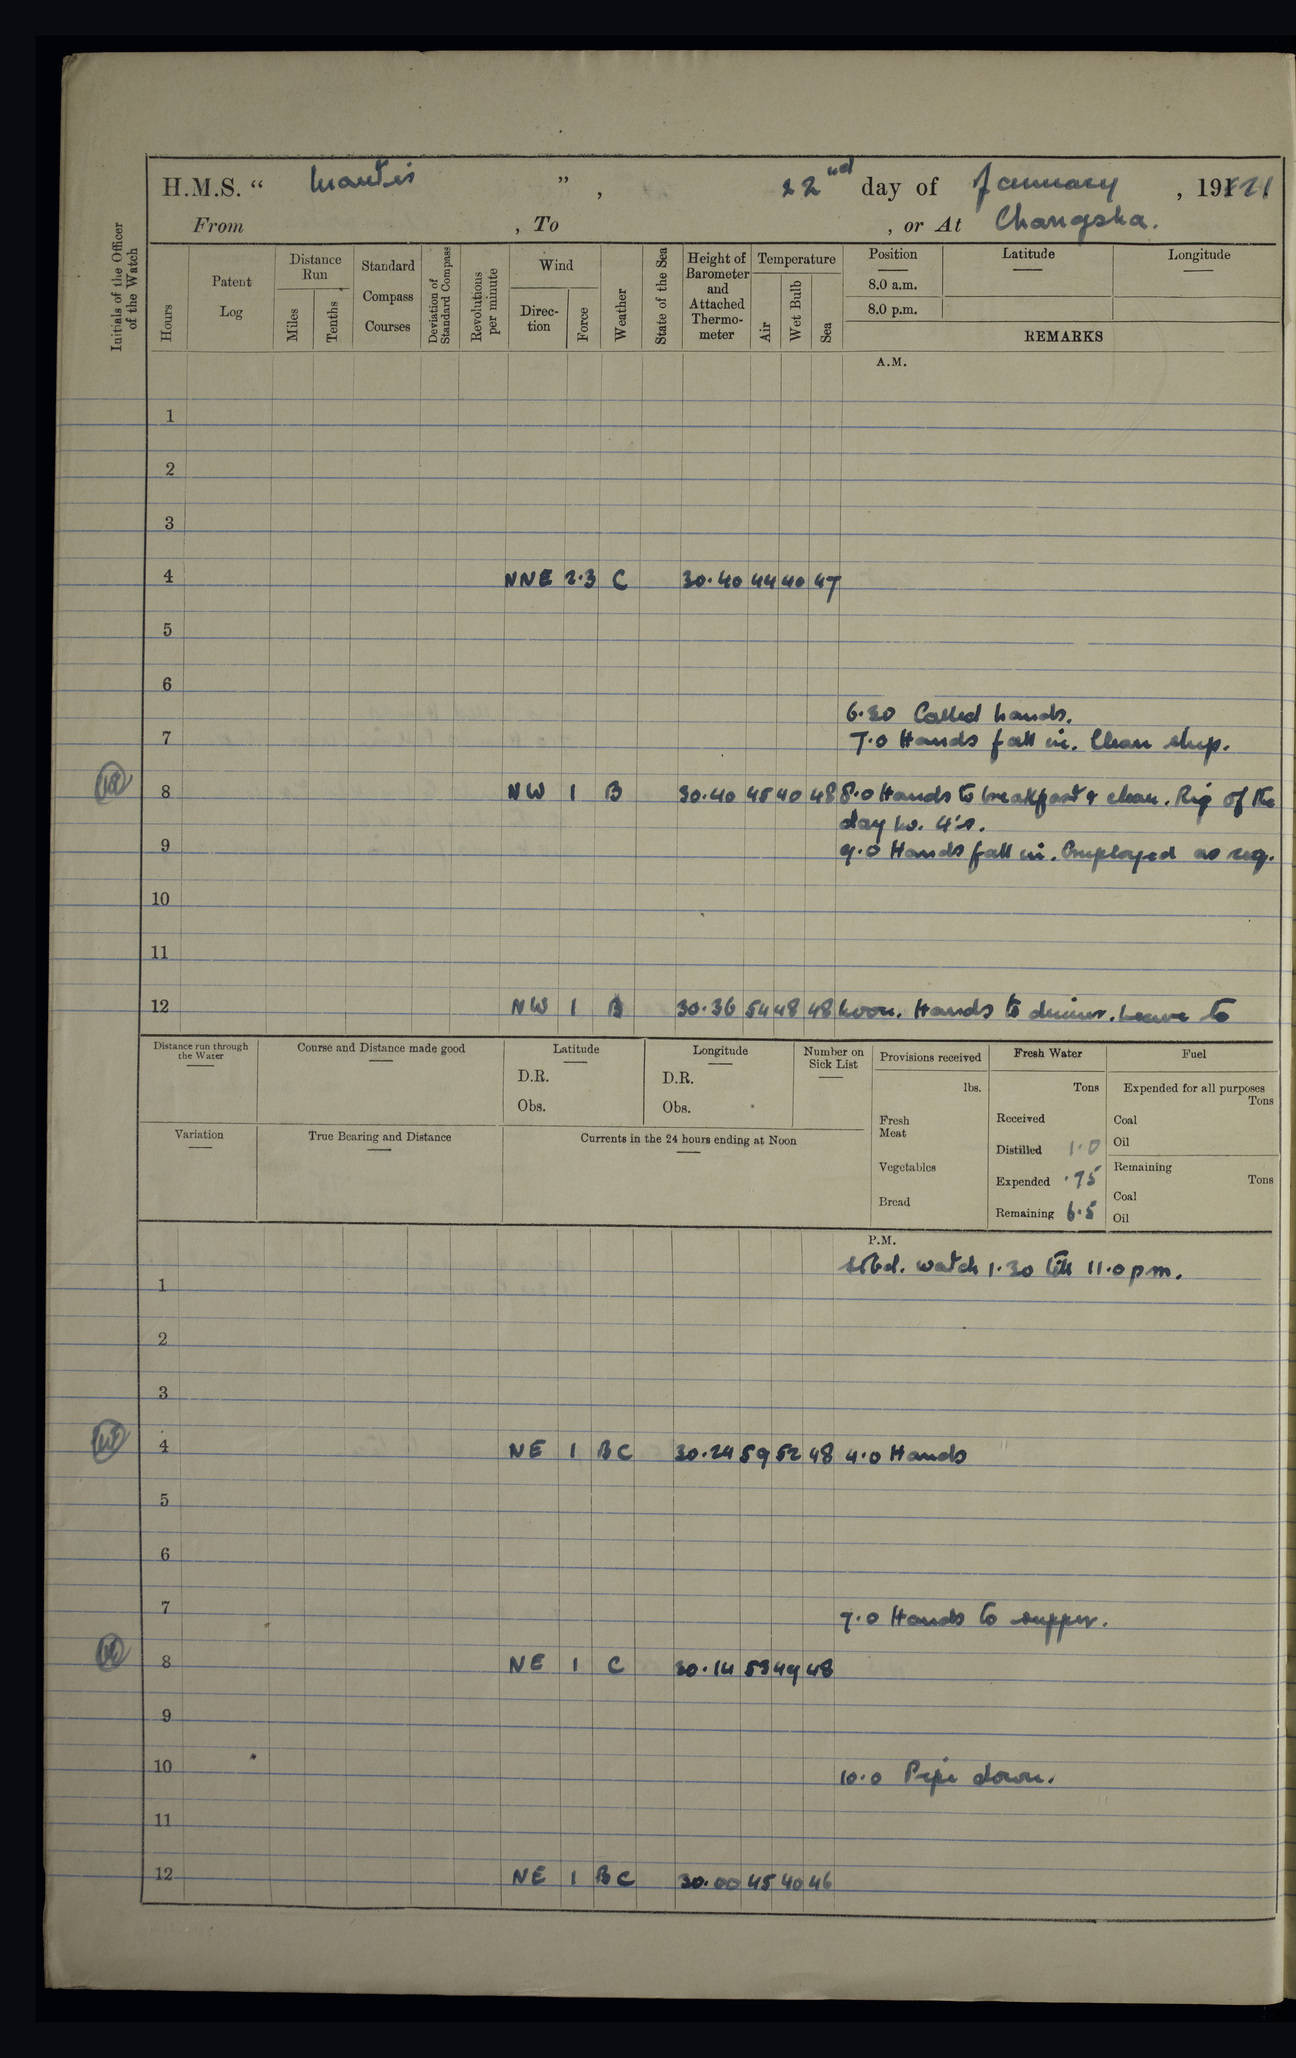 H.M.S. “ Mantis ” , 22nd day of January , 1921
From , To , or At Changsha.
Initials of the Officer of the Watch
Hours
Patent Log
Distance Run
Miles
Tenths
Standard Compass Courses
Deviation of Standard Compass
Revolutions per minute
Wind
Direction
Force
Weather
State of the Sea
Height of Barometer and Attached Thermometer
Temperature
Air
Wet Bulb
Sea
Position
8.0 a.m.
8.0 p.m.
Latitude
Longitude
REMARKS
A.M.
1
2
3
4 NNE 2.3 C 30.40 44 40 47
5
6
6.30 Called hands.
7 7.0 Hands fall in. Clean ship.
8 NW 1 B 30.40 45 40 48 8.0 Hands to breakfast & clean. Rig of the
day No. 4's.
9 9.0 Hands fall in. Employed as req.
10
11
12 NW 1 B 30.36 54 48 48 Noon. Hands to dinner. Leave to
Distance run through the Water
Course and Distance made good
Latitude
D.R.
Obs.
Longitude
D.R.
Obs.
Number on Sick List
Provisions received
lbs.
Fresh Meat
Vegetables
Bread
Fresh Water
Tons
Received
Distilled 1.0
Expended .75
Remaining 6.5
Fuel
Expended for all purposes
Tons
Coal
Oil
Remaining
Tons
Coal
Oil
Variation
True Bearing and Distance
Currents in the 24 hours ending at Noon
P.M.
Stbd. watch 1.30 till 11.0 pm.
1
2
3
4 NE 1 BC 30.24 59 52 48 4.0 Hands
5
6
7 7.0 Hands to supper.
8 NE 1 C 30.14 53 49 48
9
10 10.0 Pipe down.
11
12 NE 1 BC 30.00 45 40 46